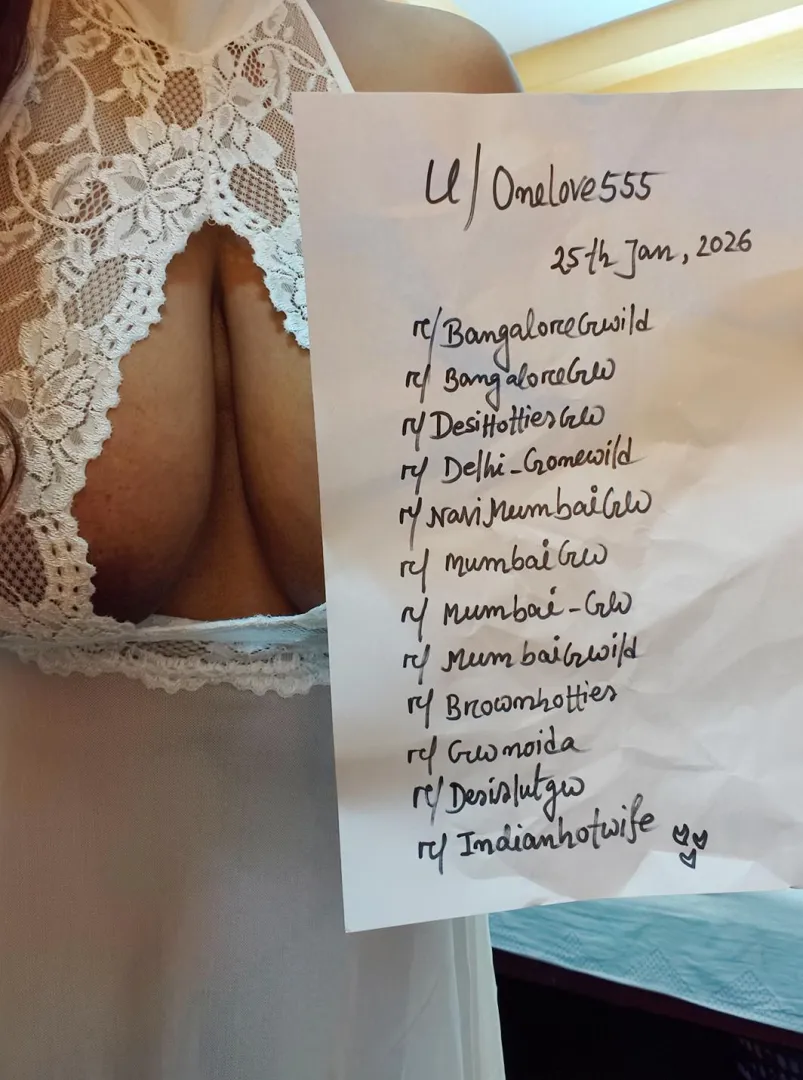 U/Onelove555
25th Jan, 2026
r/BangaloreGwild
r/BangaloreGW
r/DesiHottiesGW
r/Delhi_Gonewild
r/NaviMumbaiGW
r/MumbaiGW
r/Mumbai-GW
r/MumbaiGwild
r/Brownhotties
r/GWnoida
r/Desislutgw
r/Indianhotwife